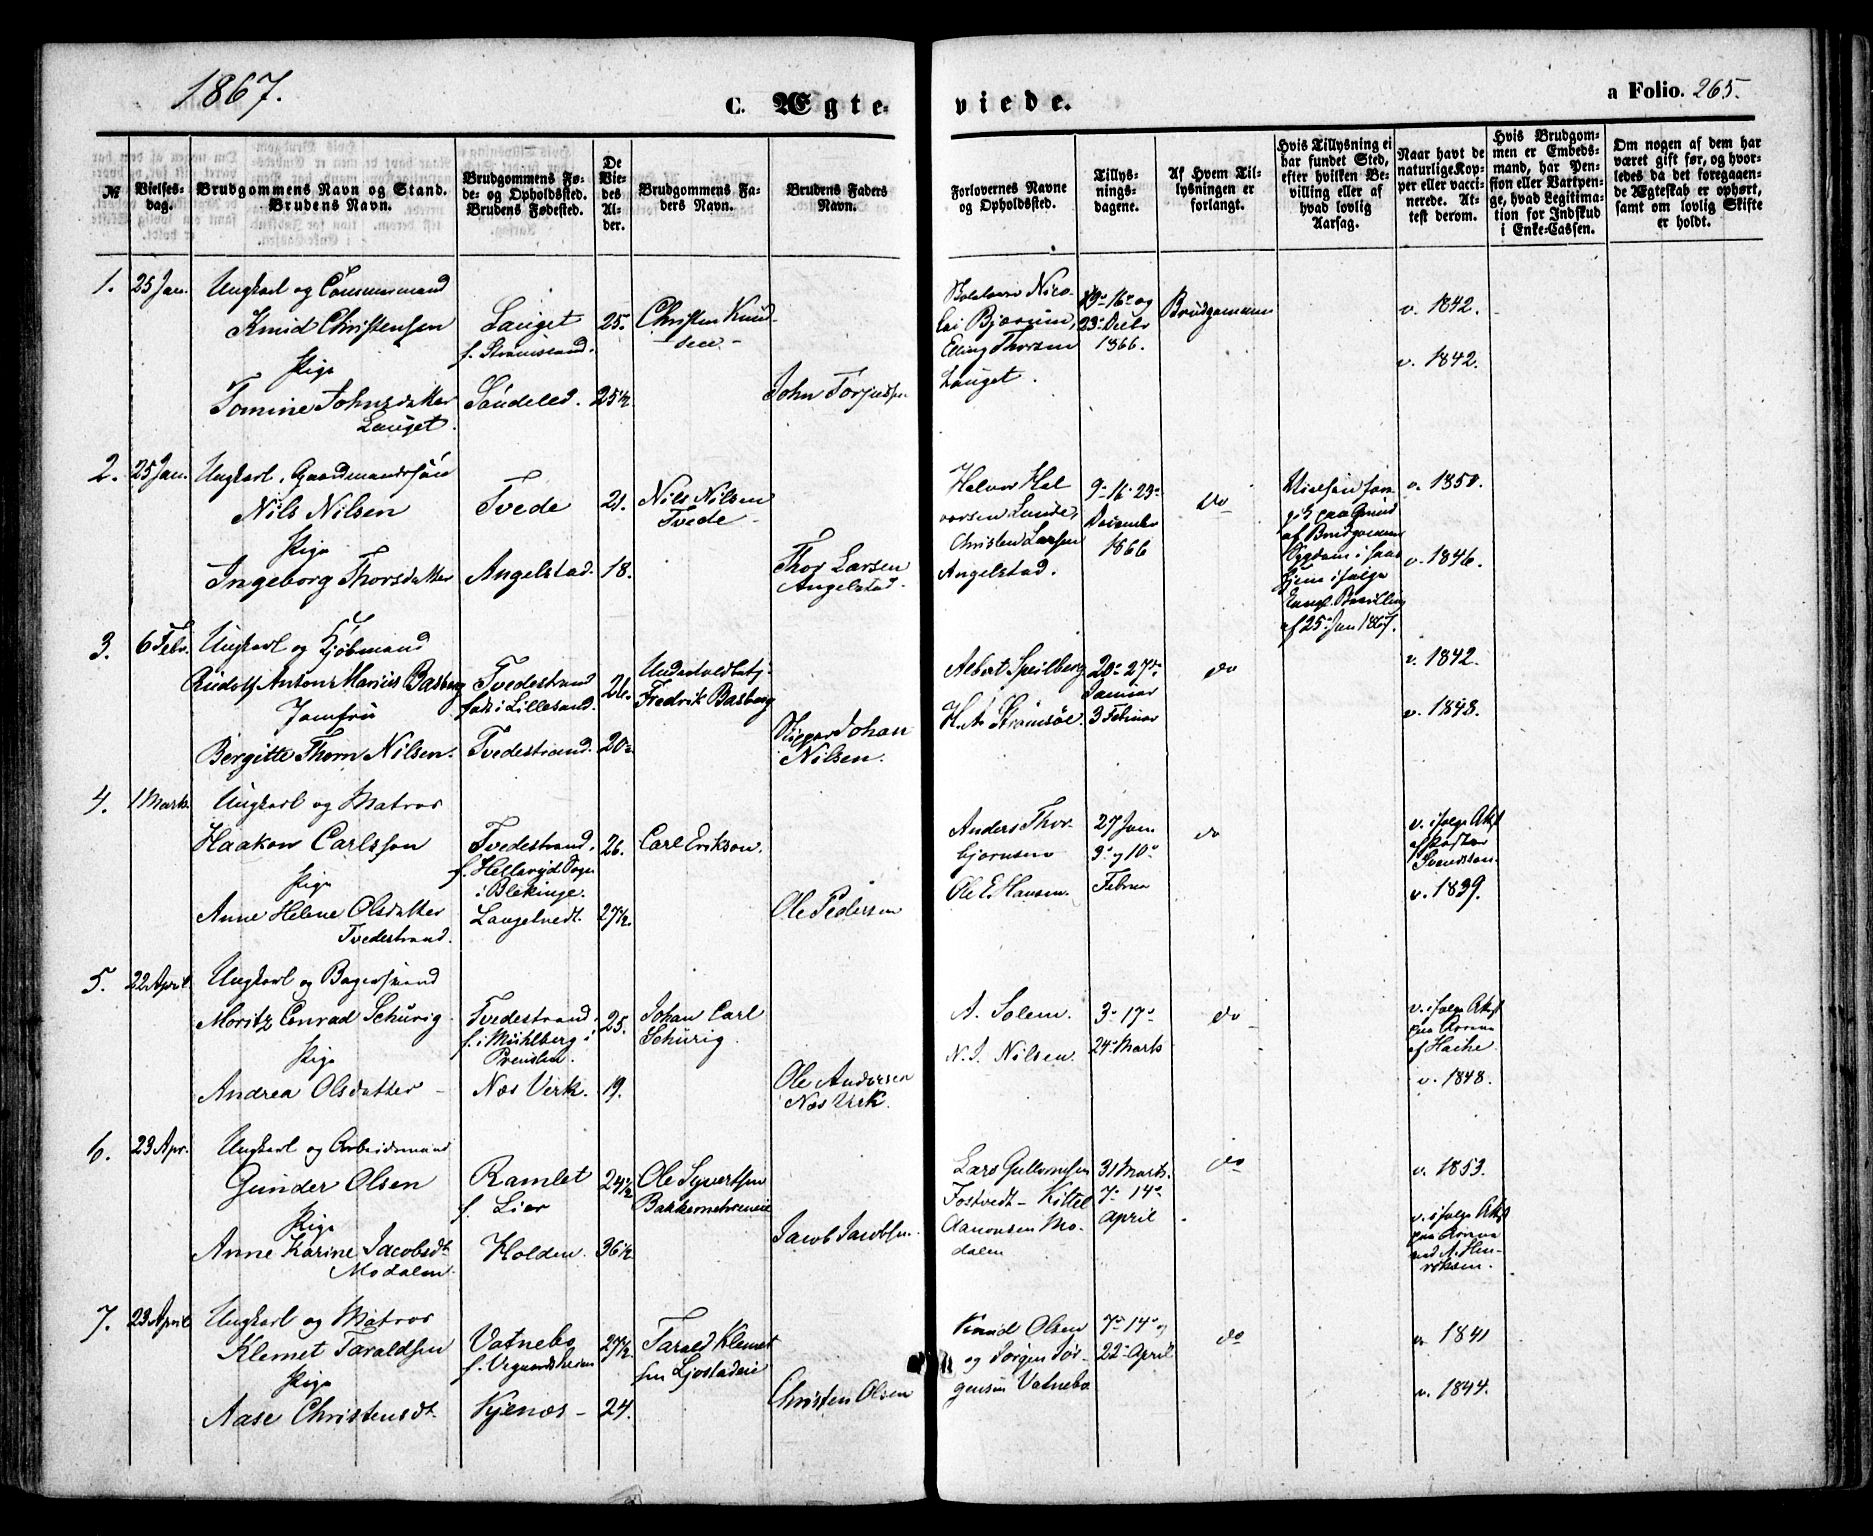 1867.
C. Ægte-
viede.
a Folio. 265.
№
Vielses-
dag.
Brudgommens Navn og Stand.
Brudens Navn.
Brudgommens Fø-
de- og Opholdssted.
Brudens Fødested.
De
Vie-
des
Al-
der.
Brudgommens Fa-
ders Navn.
Brudens Faders
Navn.
Forlovernes Navne
og Opholdssted.
Tillys-
nings-
dagene.
Af Hvem Til-
lysningen er
forlangt.
Hvis Tillysning ei
har fundet Sted,
efter hvilken Be-
villing eller af
hvad lovlig
Aarsag.
Naar havt de
naturlige Kop-
per eller vacci-
nerede. At-
test derom.
Hvis Brudgom-
men er Embeds-
mand, har Pen-
sion eller Vartpen-
ge, hvad Legitima-
tion for Indskud
i Enke-Cassen.
Om nogen af dem har
været gift før, og hvor-
ledes da det foregaaen-
de Ægteskab er ophørt,
samt om lovlig Skifte
er holdt.
1.
25 Jan.
Ungkarl og
Knud Christensen
Pige
Tomine Johnsdatter
Lauget.
Lauget
f. Strømsland.
Søndeled.
25.
25½
Christen Knud-
sen
John Torjussen
Nico-
lai Bjorum,
Elling Thorsen
Lauget.
9de 16de og
23de Decbr
1866.
Brudgommen
v. 1842.
v. 1842.
2.
25 Jan.
Ungkarl, Gaardmandssøn
Nils Nilsen
Pige
Ingeborg Thorsdatter
Tvede
Angelstad.
21.
18.
Nils Nilsen
Tvede
Thor Larsen
Angelstad.
Halvor Hal-
vorsen Lunde,
Christen Larsen
Angelstad.
9de 16de 23de
December
1866
do
Vielsen fore-
gik paa Grund
af Brudgommens
Sygdom i
Hjem ifølge
Bevilling
af 25de Jan 1867.
v. 1850.
v. 1846.
3.
6 Febr.
Ungkarl og Kjøbmand
Rudolf Anton Marius Basberg
Jomfru
Bergitte Thorn Nilsen.
Tvedestrand
født i Lillesand.
Tvedestrand.
26.
20
Fredrik Basberg
Skipper Johan
Nilsen.
Albert Speilberg
H. A. Strømsøe.
20de 27de
Januar
3 Februar
do
v. 1842.
v. 1848.
4.
1 Marts
Ungkarl og Matros
Haakon Carlsson
Pige
Anne Helene Olsdatter
Tvedestrand.
Tvedestrand,
f. Sogn
i Blekinge.
Langetvedt.
26.
27½.
Carl Erikson.
Ole Pedersen
Anders Thor-
bjørnsen
Ole E. Hansen.
27 Jan.
3de og 10de
Februar
do
v. ifølge Attest
af
Svendsson.
v. 1839.
5.
22 April
Ungkarl og Bagersvend
Moritz Conrad Schurig
Pige
Andrea Olsdatter
Tvedestrand.
f. i Mühlberg i
Preusen.
Næs Verk.
25.
19.
Johan Carl
Schurig.
Ole Andersen
Næs Verk.
A. Solem.
N. J. Nilsen.
3de 17de
24de Marts
do
v. ifølge Attest
paa
af Hache.
v. 1848.
6.
23 Apr.
Ungkarl og Arbeidsmand
Gunder Olsen
Pige
Anne Karine Jacobsdt
Modalen.
Ramlet
f. Lier
Holden.
24½
36½
Ole Syvertsen
Jacob Jacobsen.
Lars Gullovsen
Fostvedt - Kittel
Aanonsen Mo-
dalen
31 Marts.
7de 14de
April
do
v. 1853.
v. ifølge Attest
paa
ved A. Hen-
riksen.
7.
23 April
Ungkarl og Matros
Klemet Taraldsen
Pige
Aase Christensdt
Vatnebo
Kjenæs
27½.
24.
Tarald Klemet-
sen
Christen Olsen
Knud Olsen
og Jørgen Jør-
gensen Vatnebo
7de 14de og
22de April
do
v. 1841
v. 1844.